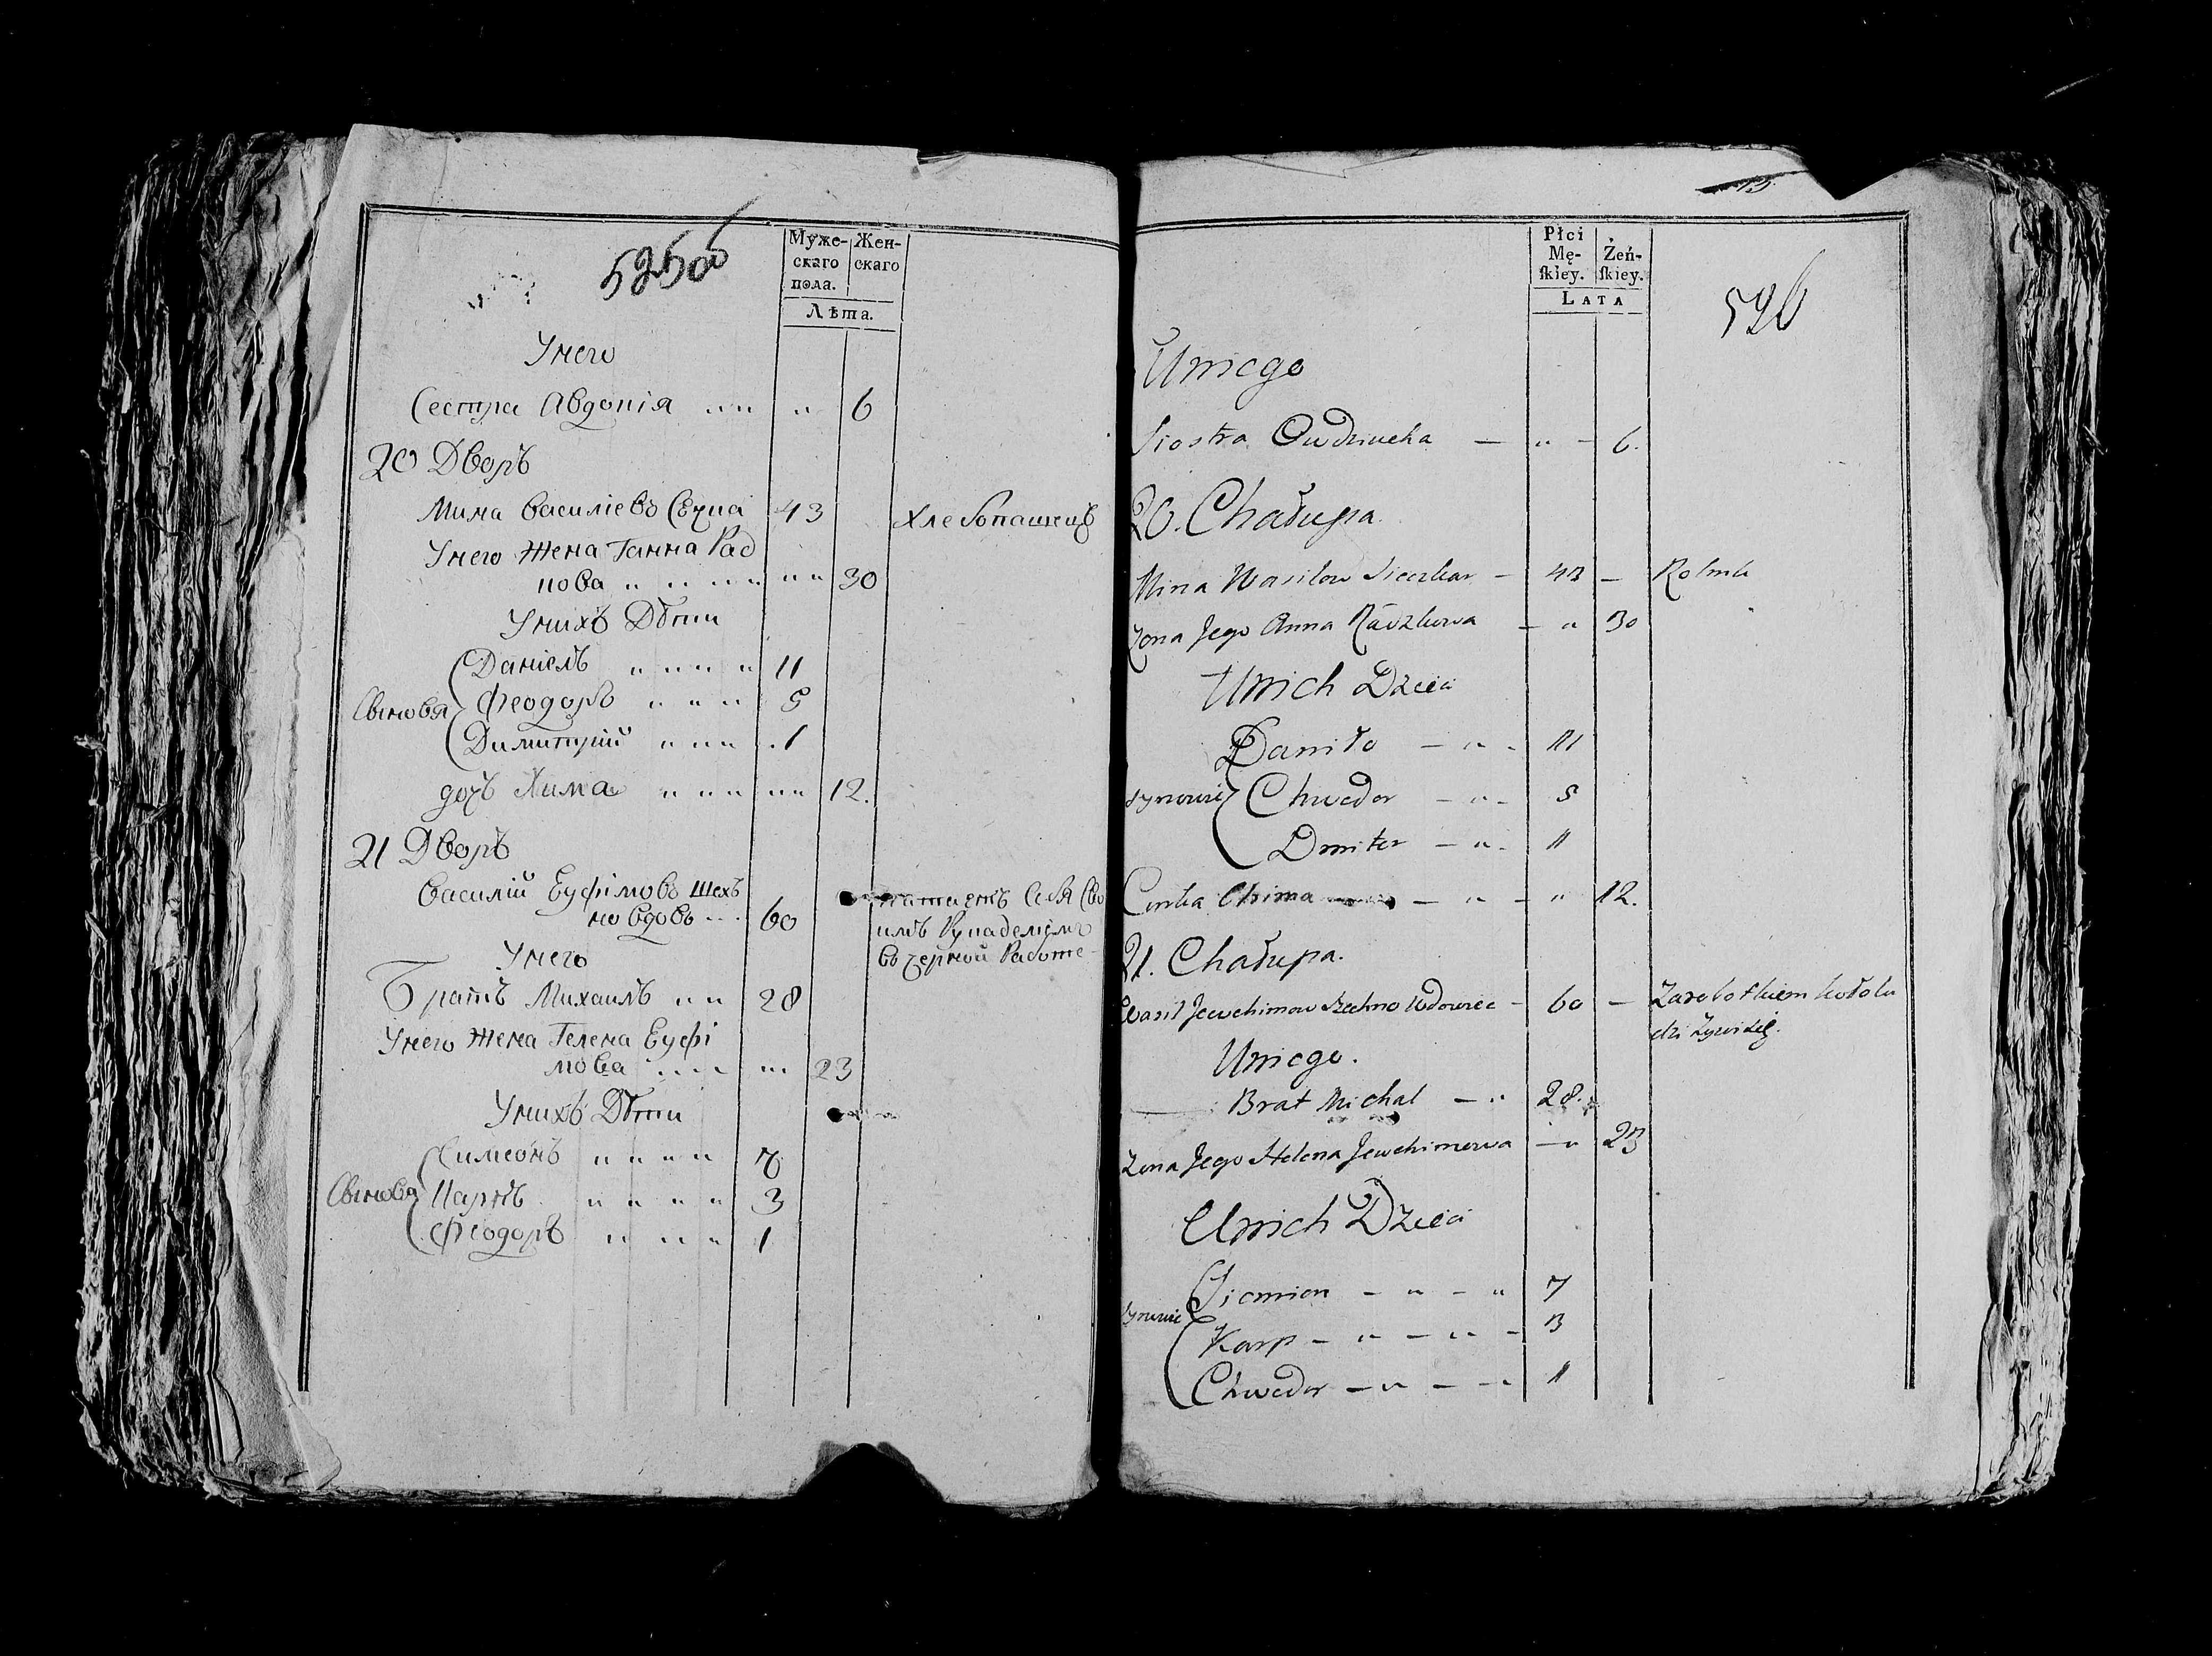 Муже-
скаго
пола.
Жен-
скаго
Лѣта.
Унего
Сестра Авдотія „ „ „ 6
20 Дворъ
Мина Василіевъ 43 Хлебопашецъ
Унего Жена Ганна Рад
кова „ „ „ „ „ 30
Унихъ Дѣти
Даніелъ „ „ „ „ 11
Сыновья Феодоръ „ „ „ 5
Димитрій „ „ „ 1
дочь Хима „ „ „ „ „ 12.
21 Дворъ
Василій Еуфімовъ Шех
но вдовъ 60
Себя Сво
имъ Рукаделіемъ
въ черной Работе
Унего
Братъ Михаилъ „ „ 28
Унего Жена Гелена Еуфі
мова „ „ 23
Унихъ Дѣти
Симеонъ „ „ „ „ 7
Сыновья Карпъ „ „ „ „ 3
Феодоръ „ „ „ 1
Płci
Mę-
skiey.
Żeń-
skiey.
LATA
596
Uniego
Siostra Owdziucha — „ — 6.
20. Chałupa.
Mina Wasilow Sieczkar — 43 — Rolnik
Zona Jego Anna Radzkowa — „ 30
Unich Dzieci
Daniło — „ - 11
Synowie Chwedor — „ - 5
Dmiter — „ - 1
Curka Chima — „ — „ 12.
21. Chałupa.
Wasil Jewchimow Szechno Wdowiec — 60 — Zarobotkiem kołolu
dzi żywi się.
Uniego.
Brat Michal — „ 28.
Zona Jego Helena Jewchimowa — „ 23
Unich Dzieci
Siemion — „ — „ 7
Synowie
Karp — „ — „ — 3
Chwedor — „ — „ 1